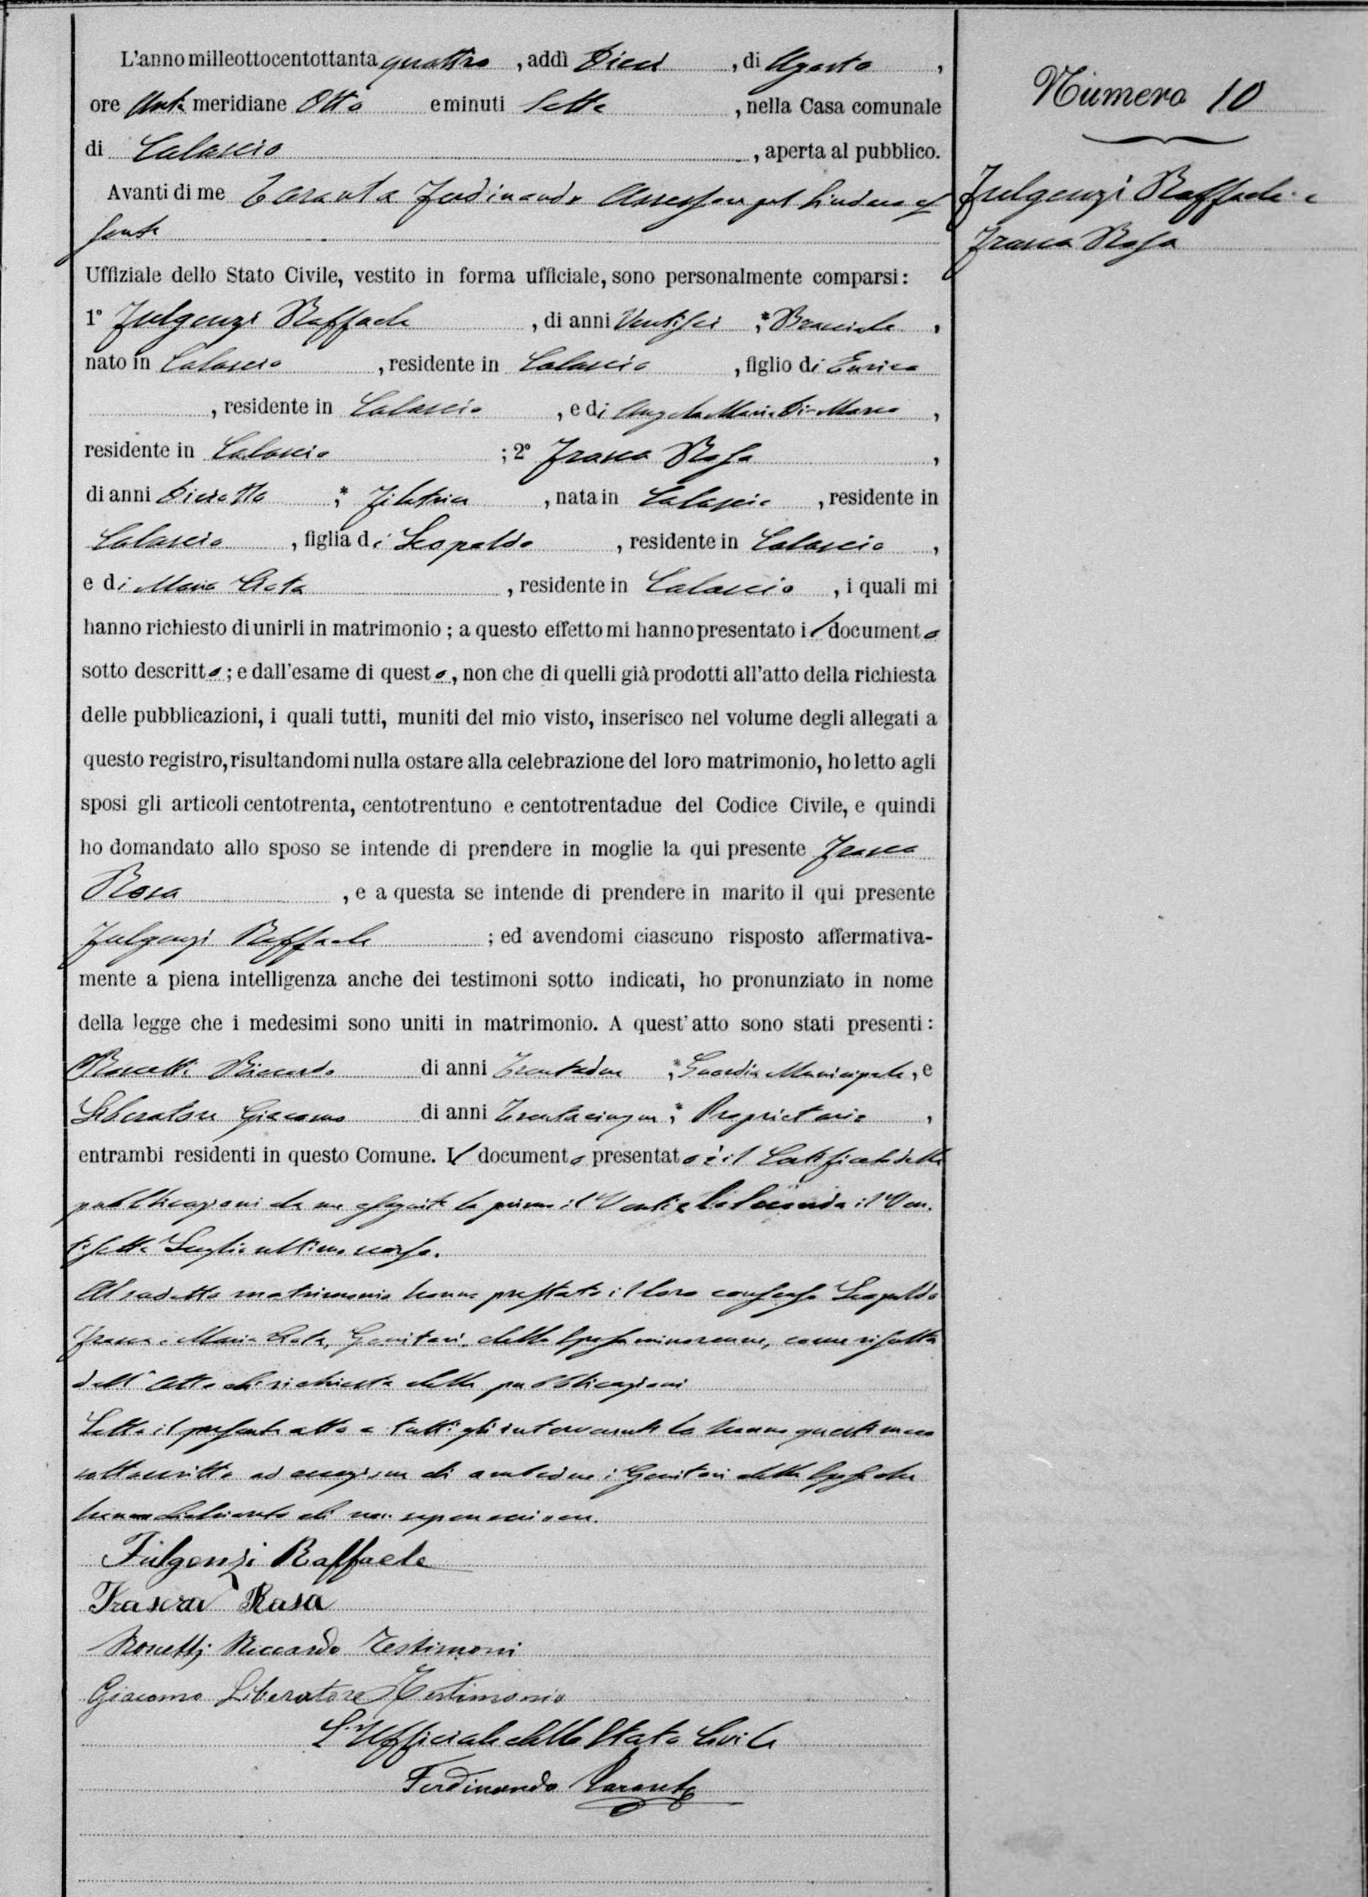 L'anno milleottocentottanta quattro, addì Dieci, di Agosto,
ore Anti meridiane Otto e minuti Sette, nella Casa comunale
di Calascio, aperta al pubblico.
Avanti di me Taranta Ferdinando Assessore pel Sindaco as
sente
Uffiziale dello Stato Civile, vestito in forma ufficiale, sono personalmente comparsi:
1° Fulgenzi Raffaele, di anni Ventisei, * Bracciale,
nato in Calascio, residente in Calascio, figlio di Enrico
, residente in Calascio, e di Angela Maria Di-Marco,
residente in Calascio; 2° Frasca Rosa,
di anni Dieciotto, * Filatrice, nata in Calascio, residente in
Calascio, figlia di Leopoldo, residente in Calascio,
e di Maria, residente in Calascio, i quali mi
hanno richiesto di unirli in matrimonio; a questo effetto mi hanno presentato il documento
sotto descritto; e dall'esame di questo, non che di quelli già prodotti all'atto della richiesta
delle pubblicazioni, i quali tutti, muniti del mio visto, inserisco nel volume degli allegati a
questo registro, risultandomi nulla ostare alla celebrazione del loro matrimonio, ho letto agli
sposi gli articoli centotrenta, centotrentuno e centotrentadue del Codice Civile, e quindi
ho domandato allo sposo se intende di prendere in moglie la qui presente Frasca
Rosa, e a questa se intende di prendere in marito il qui presente
Fulgenzi Raffaele; ed avendomi ciascuno risposto affermativa-
mente a piena intelligenza anche dei testimoni sotto indicati, ho pronunziato in nome
della legge che i medesimi sono uniti in matrimonio. A quest'atto sono stati presenti:
Roscetti Riccardo di anni Trentadue, * Guardia Municipale, e
Liberatore Giacomo di anni Trentacinque, * Proprietario,
entrambi residenti in questo Comune. Il documento presentato è il Certificato delle
pubblicazioni da me eseguite la prima il Venti e la seconda il Ven-
tisette Luglio ultimo scorso.
Al sudetto matrimonio hanno prestato il loro consenso Leopoldo
Frasca e Maria, Genitori della Sposa minorenne, come risulta
dall'Atto di richiesta delle pubblicazioni
Letto il presente atto a tutti gli intervenuti lo hanno questi meco
sottoscritto ad eccezione di ambedue i Genitori della Sposa che
hanno dichiarato di non saper scrivere.
Fulgenzi Raffaele
Frasca Rosa
Roscetti Riccardo Testimoni
Giacomo Liberatore Testimonio
L'Ufficiale dello Stato Civile
Ferdinando Taranta
Numero 10
Fulgenzi Raffaele e
Frasca Rosa